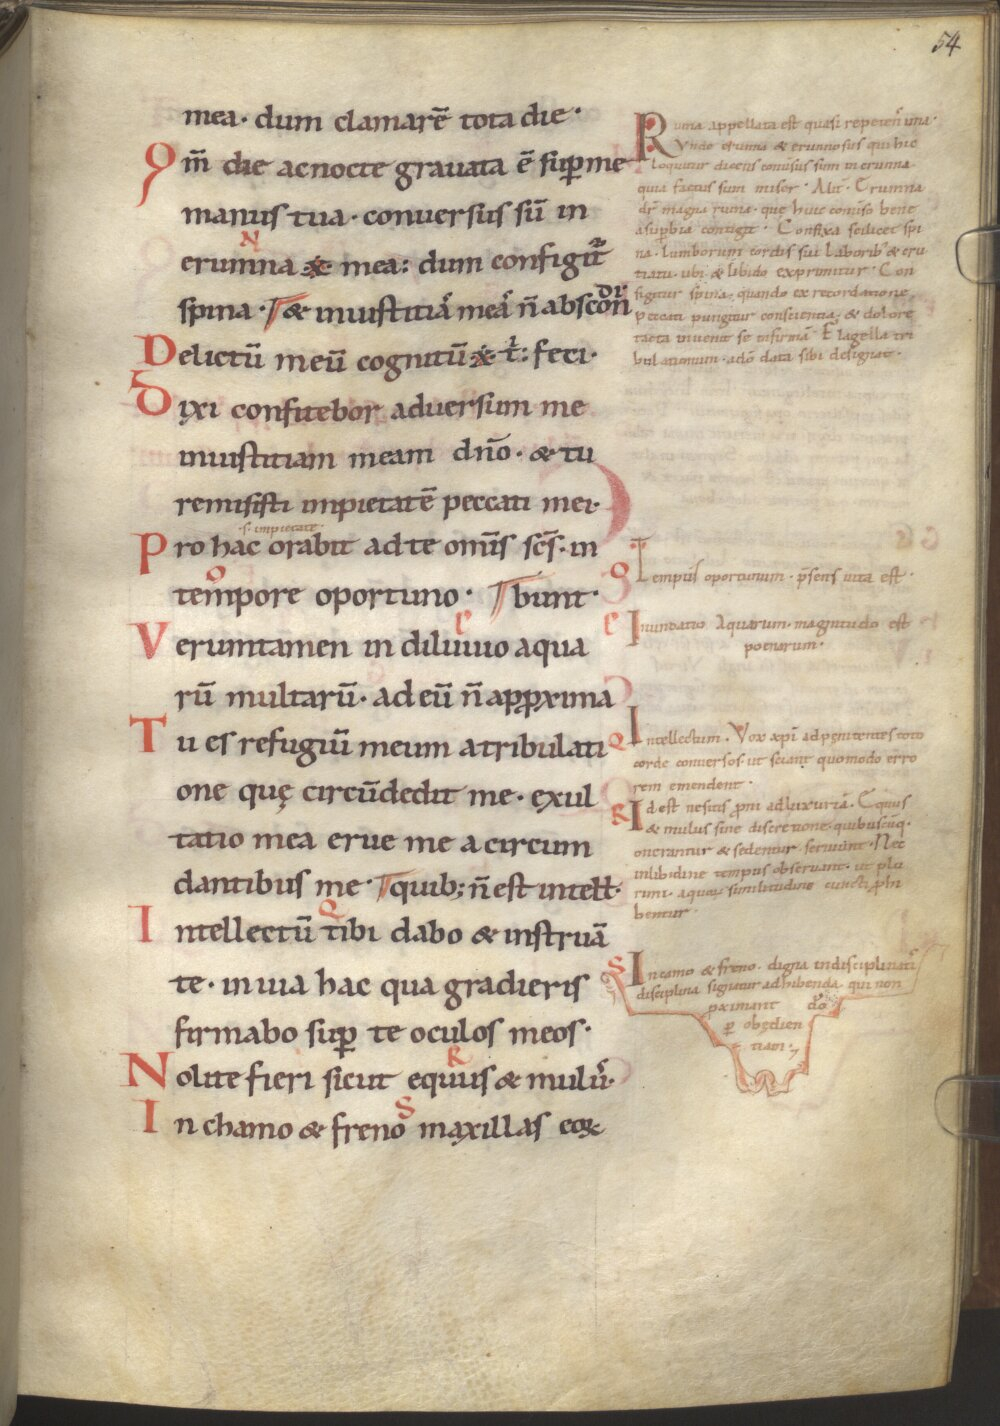 54
mea · dum clamarē tota die ·
Qm̄ die ac nocte grauata ē sup̄ me
manus tua · conuersus sū in
erumna mea : dum configit᷑
spina · & iniustitiā meā n̄ abscondi
Delictū meū cognitū t̄ : feci ·
Dixi confitebor aduersum me
iniustitiam meam dn̄o · & tu
remisisti impietatē peccati mei ·
·s· impietate ·
Pro hac orabit ad te omīs scs̄ · in
tempore oportuno · bunt ·
Veruntamen in diluuio aqua
rū multarū · ad eū n̄ apꝓxima
Tu es refugiū meum a tribulati
one quę circūdedit me · exul
tatio mea erue me a circum
dantibus me · quib; n̄ est intell̄ ·
Intellectū tibi dabo & instruā
te · in uia hac qua gradieris
firmabo sup̄ te oculos meos ·
Nolite fieri sicut equus & mulus ·
In chamo & freno maxillas eoꝝ
Ruina appellata est quasi repetens una ·
Vnde erumna & erumnosus qui hic
loquitur dicens conuersus sum in erumna
quia factus sum miser · Alit · Erumna
dr̄ magna ruina · que huic bene
a supbia contigit · Confixa scilicet spi
na · lumborum cordis sui laborib; & eru
ubi & libido exprimitur · Con
figitur spina, quando ex recordatione
peccati pungitur conscientia, & dolore
tacta inuenit se infirmā · Flagella tri
bulationum · data sibi designat ·
Tempus oportunum · p̄sens uita est ·
Inundatio Aquarum · magnitudo est
poenarum ·
Intellectum · Vox xp̄i ad penitentes toto
corde conuersos · ut sciant quomodo erro
rem emendent ·
Id est nesitis ꝓni ad luxuriā · Equus
& mulus sine discretione · quibuscūq ·
onerantur & sedentur seruiunt · Nec
in libidine tempus obseruant · ut plu
rimi · a quoꝝ similitudine cuncti ꝓhi
bentur
In camo & freno · digna indisciplinati
disciplina signatur adhibenda · qui non
ꝓximant dō
p̄ obędien
tiam ·